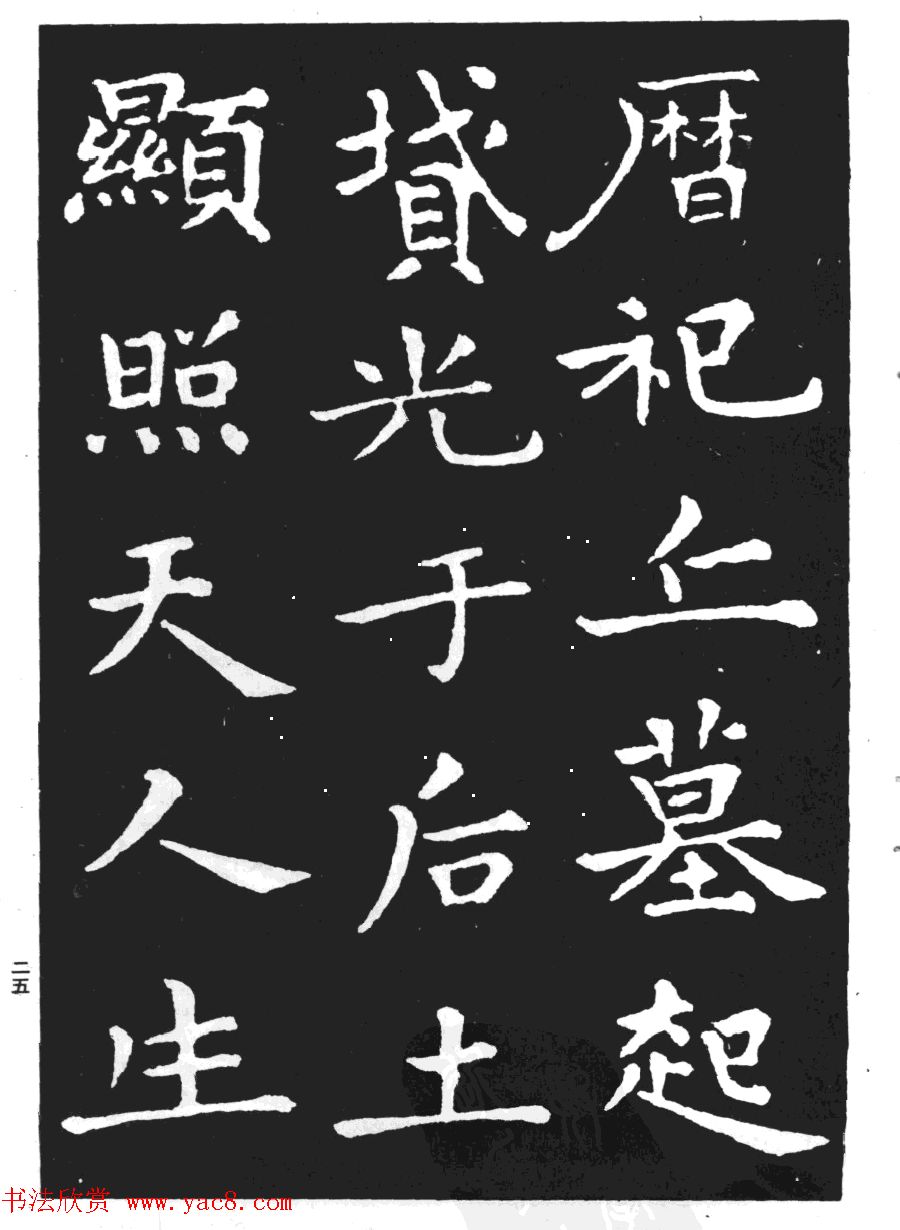 暦祀丘墓起
貸光于后土
顯照天人生
二五
书法欣赏 www.yac8.com